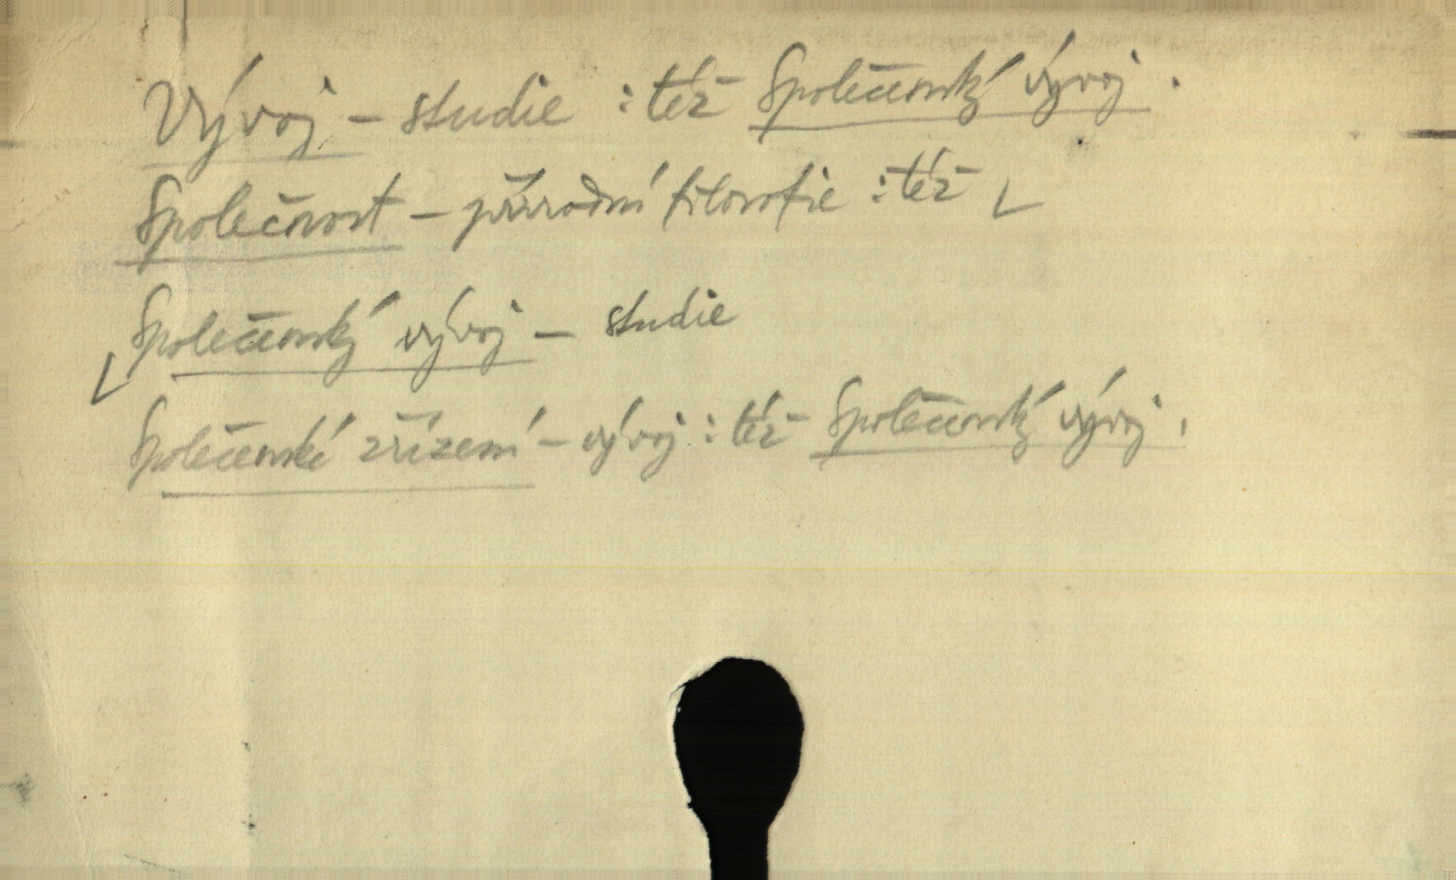 Vývoj – studie : též Společenský vývoj.
Společnost – přírodní filosofie : též
Společenský vývoj – studie
Společenské zřízení – vývoj : též Společenský vývoj.